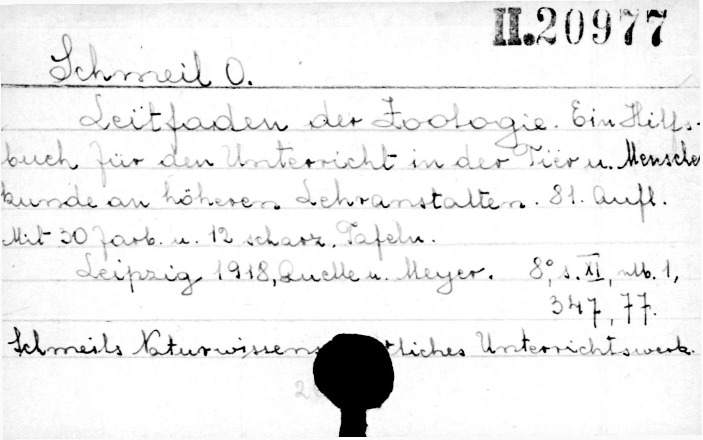 II.20977
Schmeil O.
Leitfaden der Zoologie. Ein Hilfs-
buch für den Unterricht in der Tier u. Mensche
kunde an höheren Lehranstalten. 81. Aufl.
Mit 30 farb. u. 12 schwarz. Tafeln.
Leipzig 1918, Quelle u. Meyer. 8°, s. XI, 1,
347, 77.
Schmeils Unterrichtswerk.